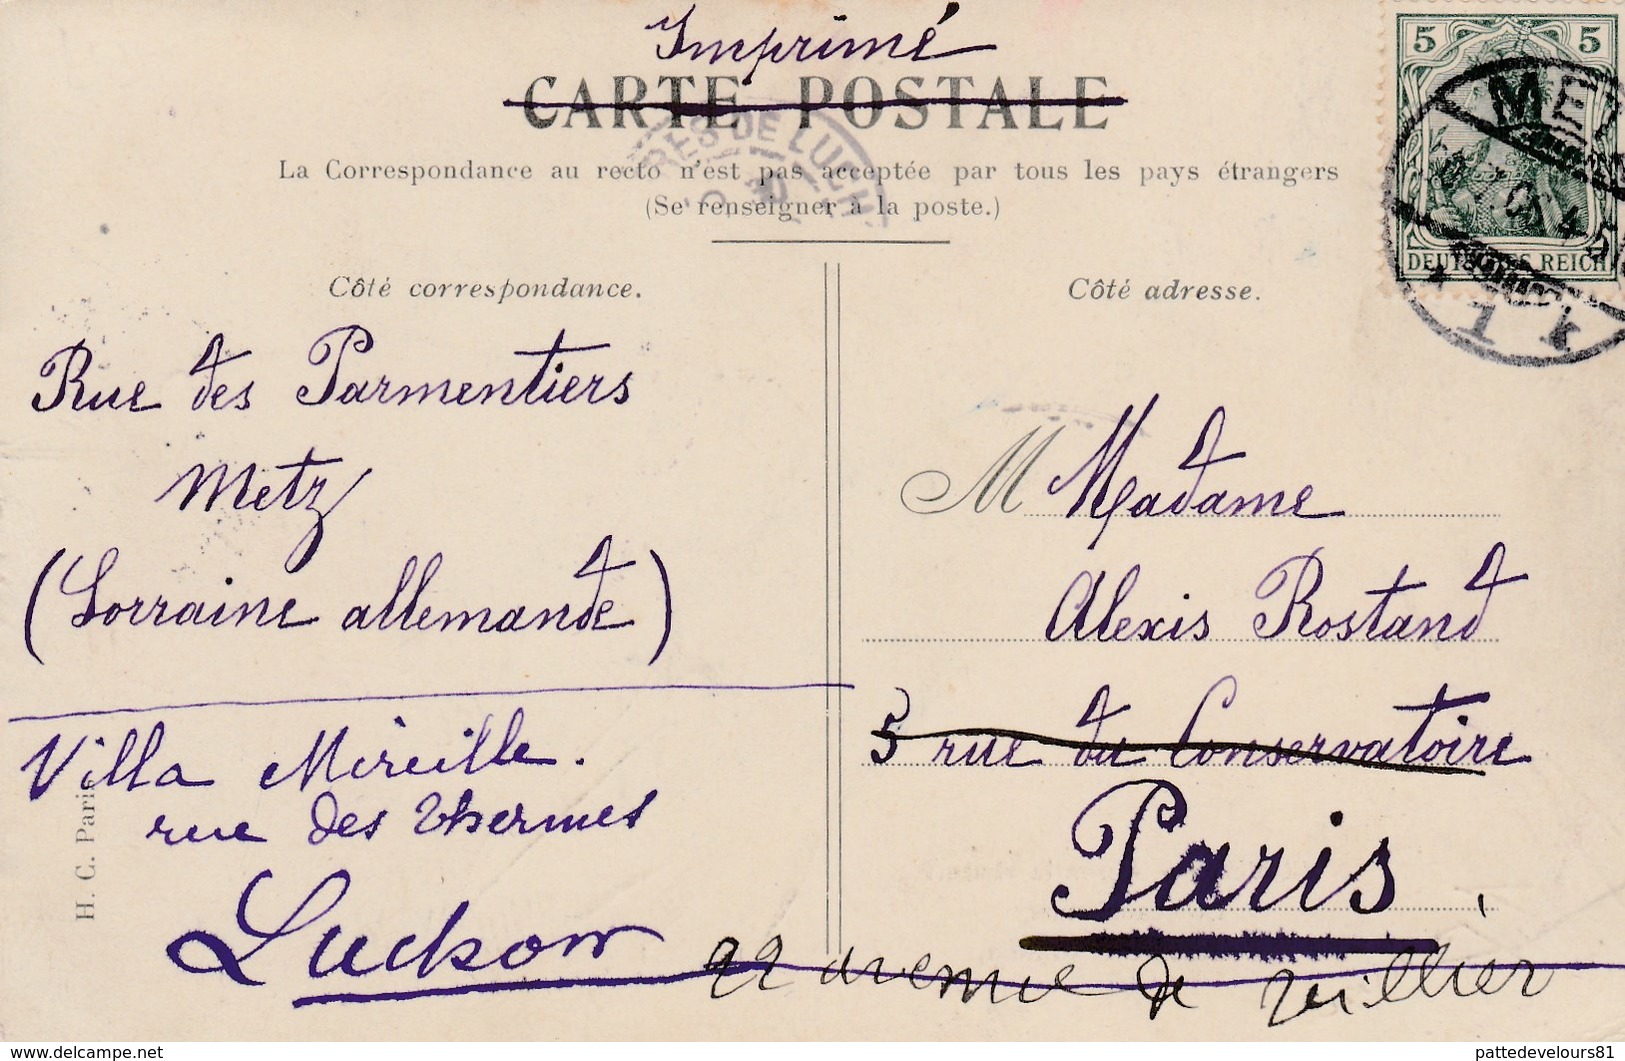 Imprimé
CARTE POSTALE
La Correspondance au recto n'est pas acceptée par tous les pays étrangers
(Se renseigner à la poste.)
5 5
DEUTSCHES REICH
METZ
RES DE LUCH
Côté correspondance.
Rue des Parmentiers
Metz
(Lorraine allemande)
Villa Mireille.
rue des Thermes
Luchon
H. C. Paris
Côté adresse.
M Madame
Alexis Rostand
5 rue du Conservatoire
Paris
22 avenue de Villier
pattedevelours81